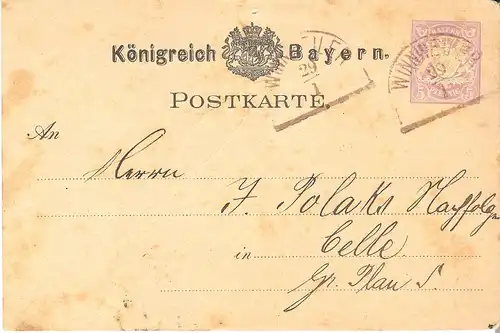 Königreich Bayern.
POSTKARTE.
An
Herrn
J. Polaks Nachfolg.
in Celle.
Gr. Plan 5.